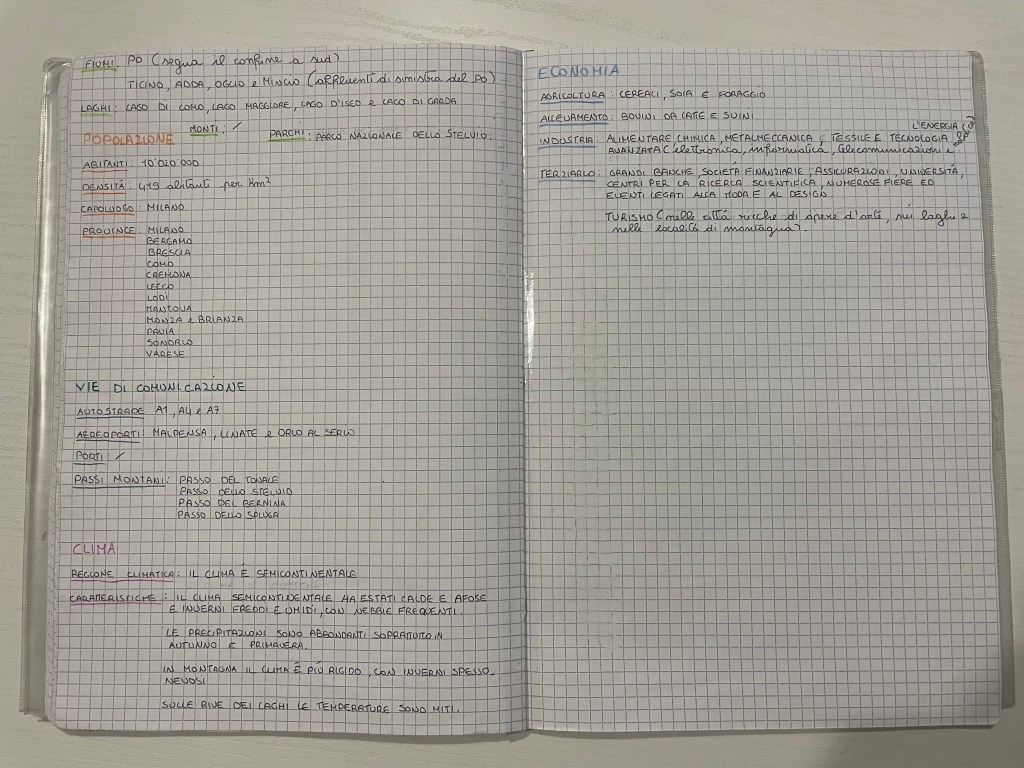 FIUMI: PO (segna il confine a sud)
TICINO, ADDA, OGLIO e MINCIO (affluenti di sinistra del PO)
LAGHI: LAGO DI COMO, LAGO MAGGIORE, LAGO D'ISEO e LAGO DI GARDA
MONTI: / PARCHI: PARCO NAZIONALE DELLO STELVIO.
POPOLAZIONE
ABITANTI: 10'020'000
DENSITÁ: 419 abitanti per Km²
CAPOLUOGO: MILANO
PROVINCE: MILANO
BERGAMO
BRESCIA
COMO
CREMONA
LECCO
LODI
MANTOVA
MONZA e BRIANZA
PAVIA
SONDRIO
VARESE
VIE DI COMUNICAZIONE
AUTOSTRADE A1, A4 e A7
AEREOPORTI: MALPENSA, LINATE e ORIO AL SERIO
PORTI: /
PASSI MONTANI: PASSO DEL TONALE
PASSO DELLO STELVIO
PASSO DEL BERNINA
PASSO DELLO SPLUGA
CLIMA
REGIONE CLIMATICA: IL CLIMA É SEMICONTINENTALE
CARATTERISTICHE: IL CLIMA SEMICONTINENTALE HA ESTATI CALDE E AFOSE
E INVERNI FREDDI E UMIDI, CON NEBBIE FREQUENTI.
LE PRECIPITAZIONI SONO ABBONDANTI SOPRATTUTTO IN
AUTUNNO E PRIMAVERA.
IN MONTAGNA IL CLIMA É PIÚ RIGIDO, CON INVERNI SPESSO
NEVOSI
SULLE RIVE DEI LAGHI LE TEMPERATURE SONO MITI.
ECONOMIA
AGRICOLTURA: CEREALI, SOIA E FORAGGIO
ALLEVAMENTO: BOVINI DA LATE E SUINI
L'ENERGIA
INDUSTRIA: ALIMENTARE, CHIMICA, METALMECCANICA E TESSILE E TECNOLOGIA
AVANZATA (elettronica, informatica, telecomunicazioni e
TERZIARIO: GRANDI BANCHE, SOCIETÁ FINANZIARIE, ASSICURAZIONI, UNIVERSITÁ,
CENTRI PER LA RICERCA SCIENTIFICA, NUMEROSE FIERE ED
EVENTI LEGATI ALLA MODA E AL DESIGN.
TURISMO (nelle cittá ricche di opere d'arte, sui laghi e
nelle localitá di montagna).